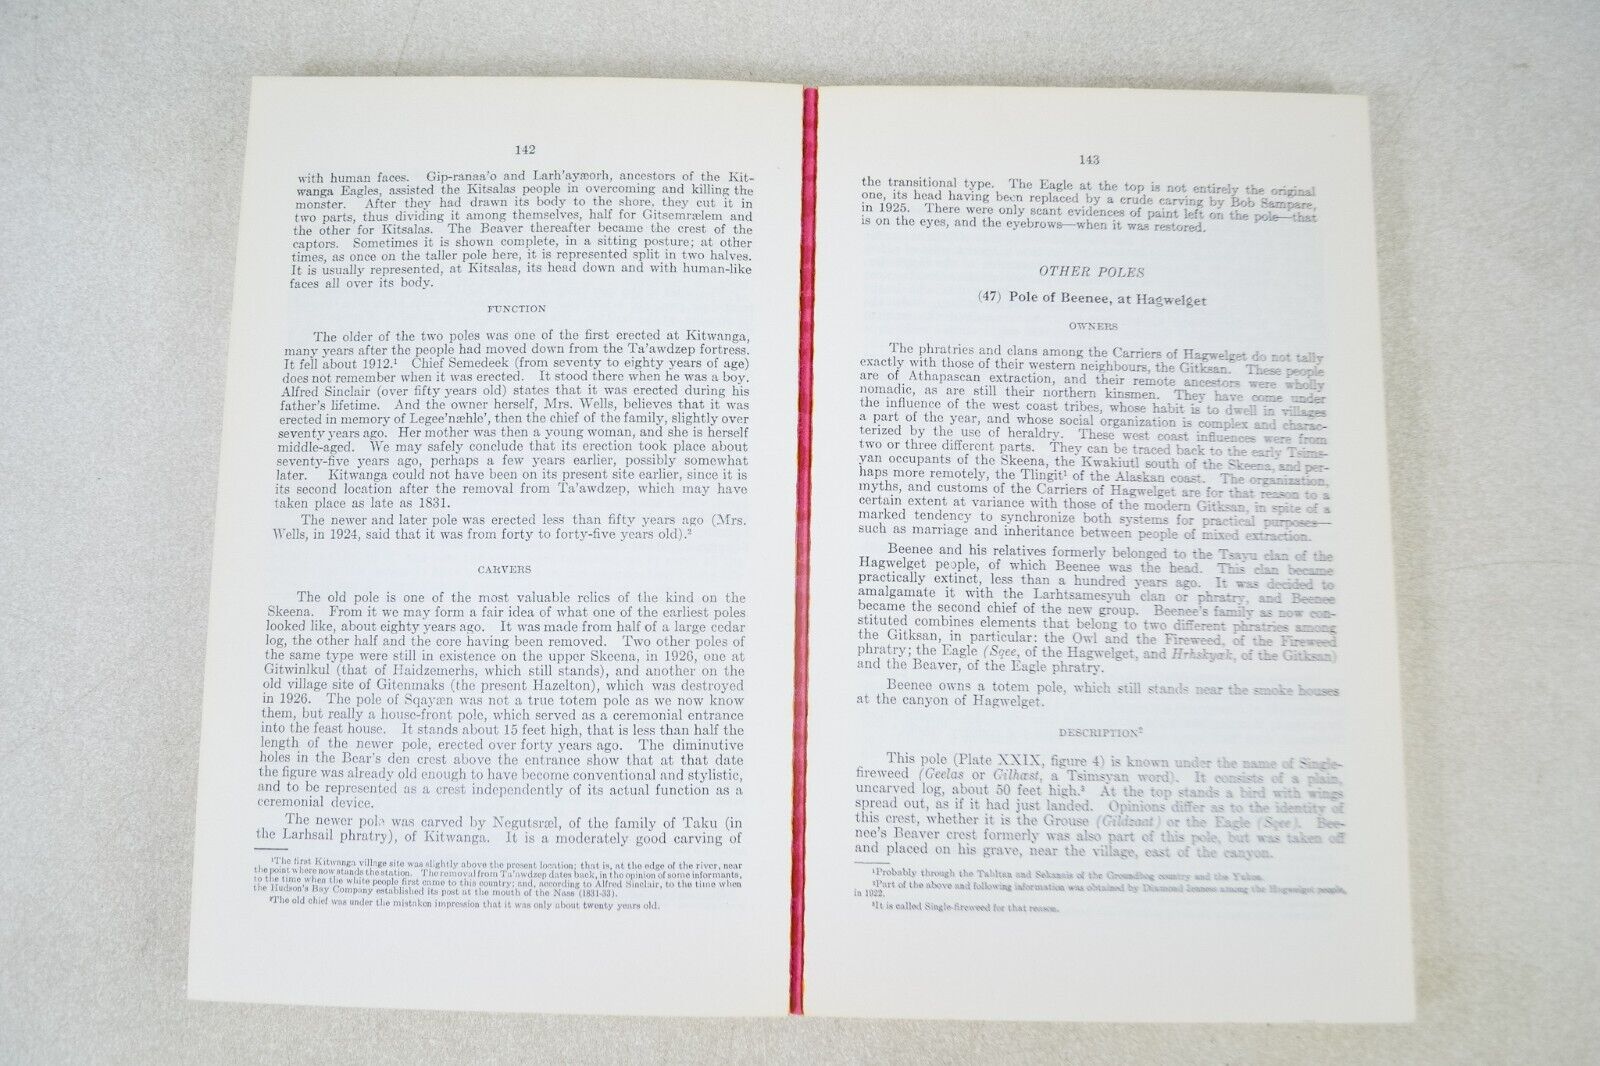 142
with human faces. Gip-ranaa'o and Larh'ayæorh, ancestors of the Kit-
wanga Eagles, assisted the Kitsalas people in overcoming and killing the
monster. After they had drawn its body to the shore, they cut it in
two parts, thus dividing it among themselves, half for Gitsemrælem and
the other for Kitsalas. The Beaver thereafter became the crest of the
captors. Sometimes it is shown complete, in a sitting posture; at other
times, as once on the taller pole here, it is represented split in two halves.
It is usually represented, at Kitsalas, its head down and with human-like
faces all over its body.
FUNCTION
The older of the two poles was one of the first erected at Kitwanga,
many years after the people had moved down from the Ta'awdzep fortress.
It fell about 1912.¹ Chief Semedeek (from seventy to eighty years of age)
does not remember when it was erected. It stood there when he was a boy.
Alfred Sinclair (over fifty years old) states that it was erected during his
father's lifetime. And the owner herself, Mrs. Wells, believes that it was
erected in memory of Legee'næhle', then the chief of the family, slightly over
seventy years ago. Her mother was then a young woman, and she is herself
middle-aged. We may safely conclude that its erection took place about
seventy-five years ago, perhaps a few years earlier, possibly somewhat
later. Kitwanga could not have been on its present site earlier, since it is
its second location after the removal from Ta'awdzep, which may have
taken place as late as 1831.
The newer and later pole was erected less than fifty years ago (Mrs.
Wells, in 1924, said that it was from forty to forty-five years old).²
CARVERS
The old pole is one of the most valuable relics of the kind on the
Skeena. From it we may form a fair idea of what one of the earliest poles
looked like, about eighty years ago. It was made from half of a large cedar
log, the other half and the core having been removed. Two other poles of
the same type were still in existence on the upper Skeena, in 1926, one at
Gitwinlkul (that of Haidzemerhs, which still stands), and another on the
old village site of Gitenmaks (the present Hazelton), which was destroyed
in 1926. The pole of Sqayæn was not a true totem pole as we now know
them, but really a house-front pole, which served as a ceremonial entrance
into the feast house. It stands about 15 feet high, that is less than half the
length of the newer pole, erected over forty years ago. The diminutive
holes in the Bear's den crest above the entrance show that at that date
the figure was already old enough to have become conventional and stylistic,
and to be represented as a crest independently of its actual function as a
ceremonial device.
The newer pole was carved by Negutsræl, of the family of Taku (in
the Larhsail phratry), of Kitwanga. It is a moderately good carving of
¹The first Kitwanga village site was slightly above the present location; that is, at the edge of the river, near
the point where now stands the station. The removal from Ta'awdzep dates back, in the opinion of some informants,
to the time when the white people first came to this country; and, according to Alfred Sinclair, to the time when
the Hudson's Bay Company established its post at the mouth of the Nass (1831-33).
²The old chief was under the mistaken impression that it was only about twenty years old.
143
the transitional type. The Eagle at the top is not entirely the original
one, its head having been replaced by a crude carving by Bob Sampare,
in 1925. There were only scant evidences of paint left on the pole—that
is on the eyes, and the eyebrows—when it was restored.
OTHER POLES
(47) Pole of Beenee, at Hagwelget
OWNERS
The phratries and clans among the Carriers of Hagwelget do not tally
exactly with those of their western neighbours, the Gitksan. These people
are of Athapascan extraction, and their remote ancestors were wholly
nomadic, as are still their northern kinsmen. They have come under
the influence of the west coast tribes, whose habit is to dwell in villages
a part of the year, and whose social organization is complex and charac-
terized by the use of heraldry. These west coast influences were from
two or three different parts. They can be traced back to the early Tsims-
yan occupants of the Skeena, the Kwakiutl south of the Skeena, and per-
haps more remotely, the Tlingit¹ of the Alaskan coast. The organization,
myths, and customs of the Carriers of Hagwelget are for that reason to a
certain extent at variance with those of the modern Gitksan, in spite of a
marked tendency to synchronize both systems for practical purposes—
such as marriage and inheritance between people of mixed extraction.
Beenee and his relatives formerly belonged to the Tsayu clan of the
Hagwelget people, of which Beenee was the head. This clan became
practically extinct, less than a hundred years ago. It was decided to
amalgamate it with the Larhtsamesyuh clan or phratry, and Beenee
became the second chief of the new group. Beenee's family as now con-
stituted combines elements that belong to two different phratries among
the Gitksan, in particular: the Owl and the Fireweed, of the Fireweed
phratry; the Eagle (Sqee, of the Hagwelget, and Hrhskyæk, of the Gitksan)
and the Beaver, of the Eagle phratry.
Beenee owns a totem pole, which still stands near the smoke houses
at the canyon of Hagwelget.
DESCRIPTION²
This pole (Plate XXIX, figure 4) is known under the name of Single-
fireweed (Geelas or Gilhæst, a Tsimsyan word). It consists of a plain,
uncarved log, about 50 feet high.³ At the top stands a bird with wings
spread out, as if it had just landed. Opinions differ as to the identity of
this crest, whether it is the Grouse (Gildzaat) or the Eagle (Sqee). Bee-
nee's Beaver crest formerly was also part of this pole, but was taken off
and placed on his grave, near the village, east of the canyon.
¹Probably through the Tahltan and Sekanais of the Groundhog country and the Yukon.
²Part of the above and following information was obtained by Diamond Jenness among the Hagwelget people,
in 1922.
³It is called Single-fireweed for that reason.